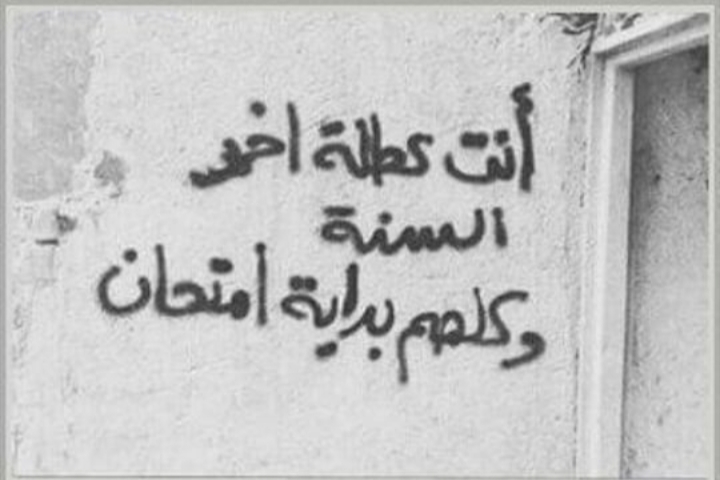 أنت عطلة اخر
السنة
وكلهم بداية أمتحان